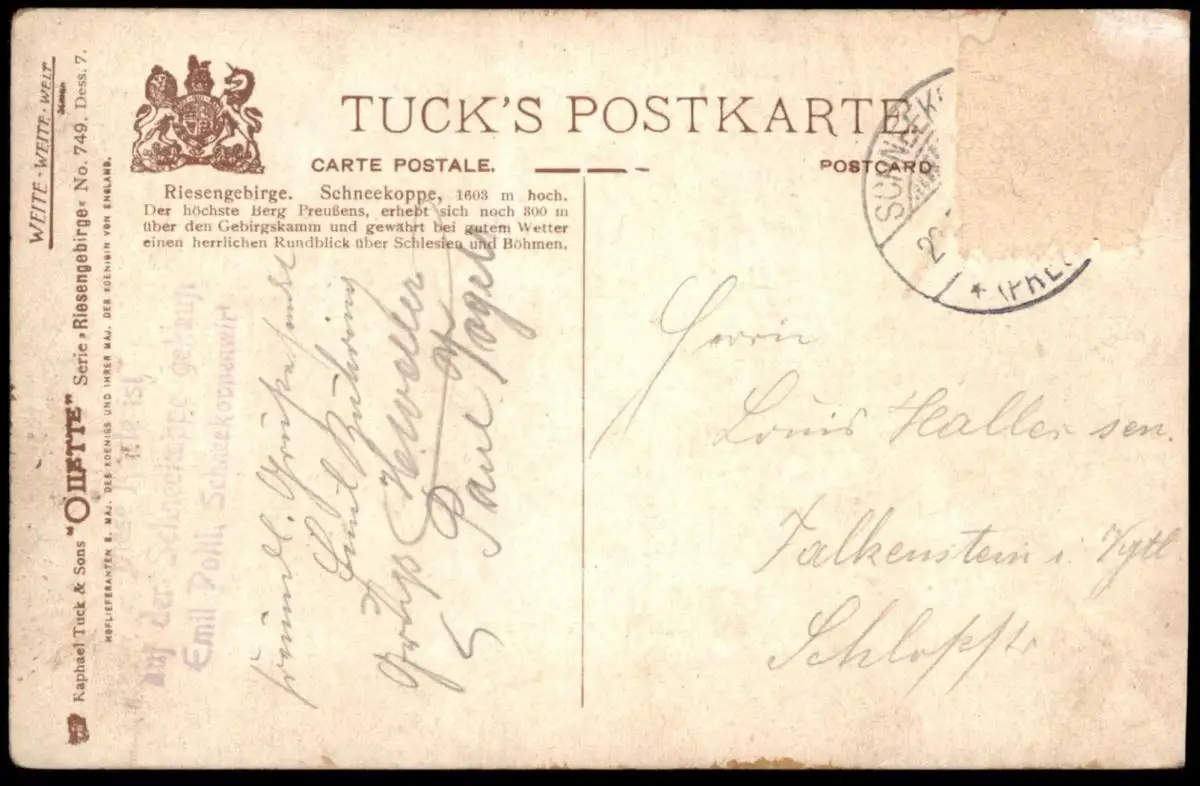 WEITE-WEITE-WELT
SERIEN
Raphael Tuck & Sons "OILETTE" Serie »Riesengebirge« No. 749. Dess. 7.
HOFLIEFERANTEN S. MAJ. DES KOENIGS UND IHRER MAJ. DER KOENIGIN VON ENGLAND.
TUCK'S POSTKARTE.
CARTE POSTALE.
POSTCARD
Riesengebirge. Schneekoppe, 1603 m hoch.
Der höchste Berg Preußens, erhebt sich noch 300 m
über den Gebirgskamm und gewährt bei gutem Wetter
einen herrlichen Rundblick über Schlesien und Böhmen.
SCHNEEK
(PRE
Diese Karte ist
auf der Schneekoppe gekauft
Emil Pohl, Schneekoppenwirt
Paul Vogel
Herrn
Louis Haller sen.
Falkenstein i. Vgtl
Schloßstr